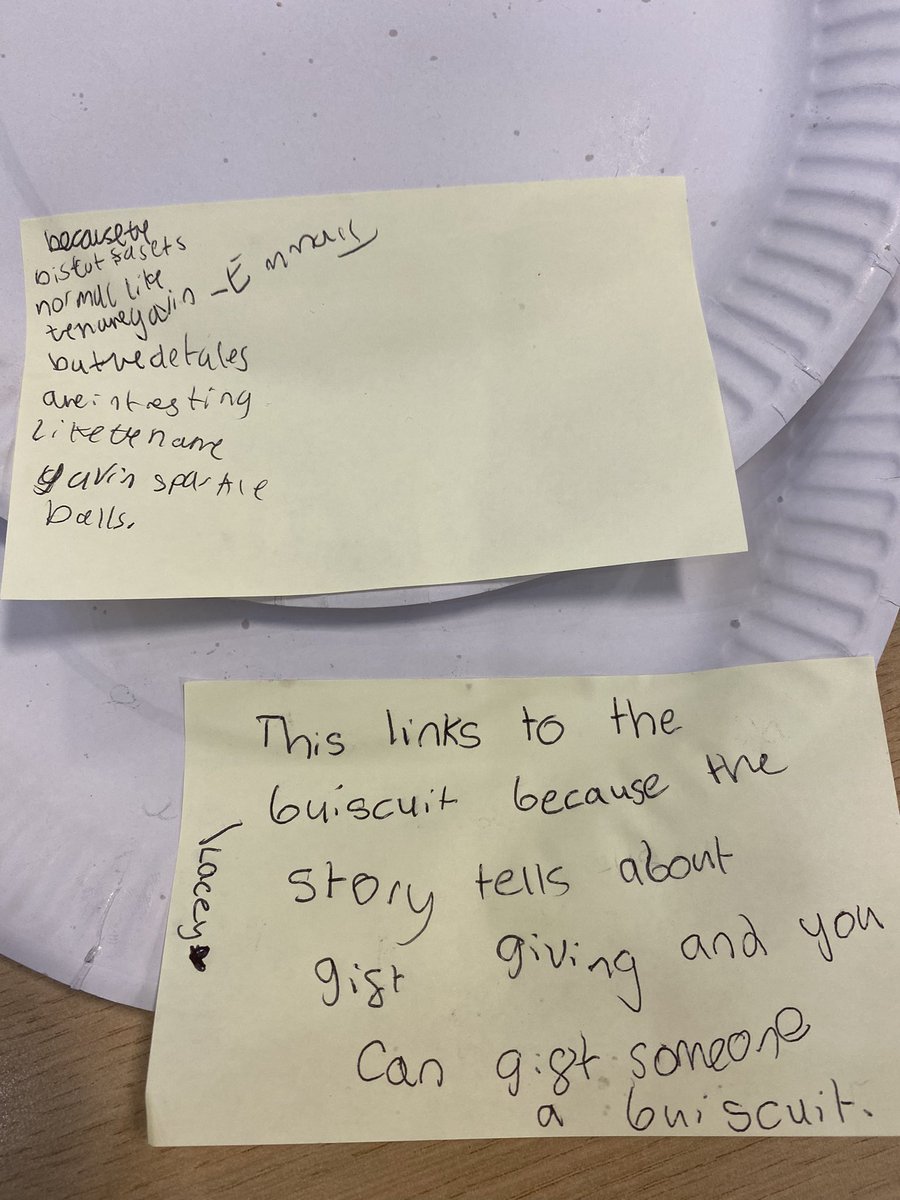 becausethe
normal like
butthedetales
areintresting
Likethename
gavin sparkle
balls.
This links to the
buiscuit because the
story tells about
gift giving and you
Can gift someone
a buiscuit.
Lacey